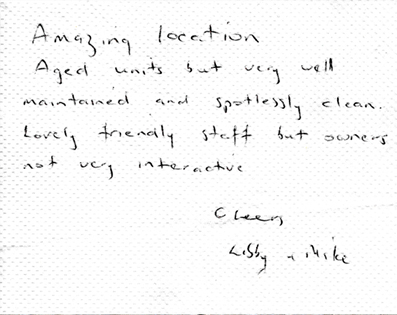 Amazing location
Aged units but very well
maintained and spotlessly clean.
Lovely friendly staff but owners
not very interactive
Cheers
Libby & Mike